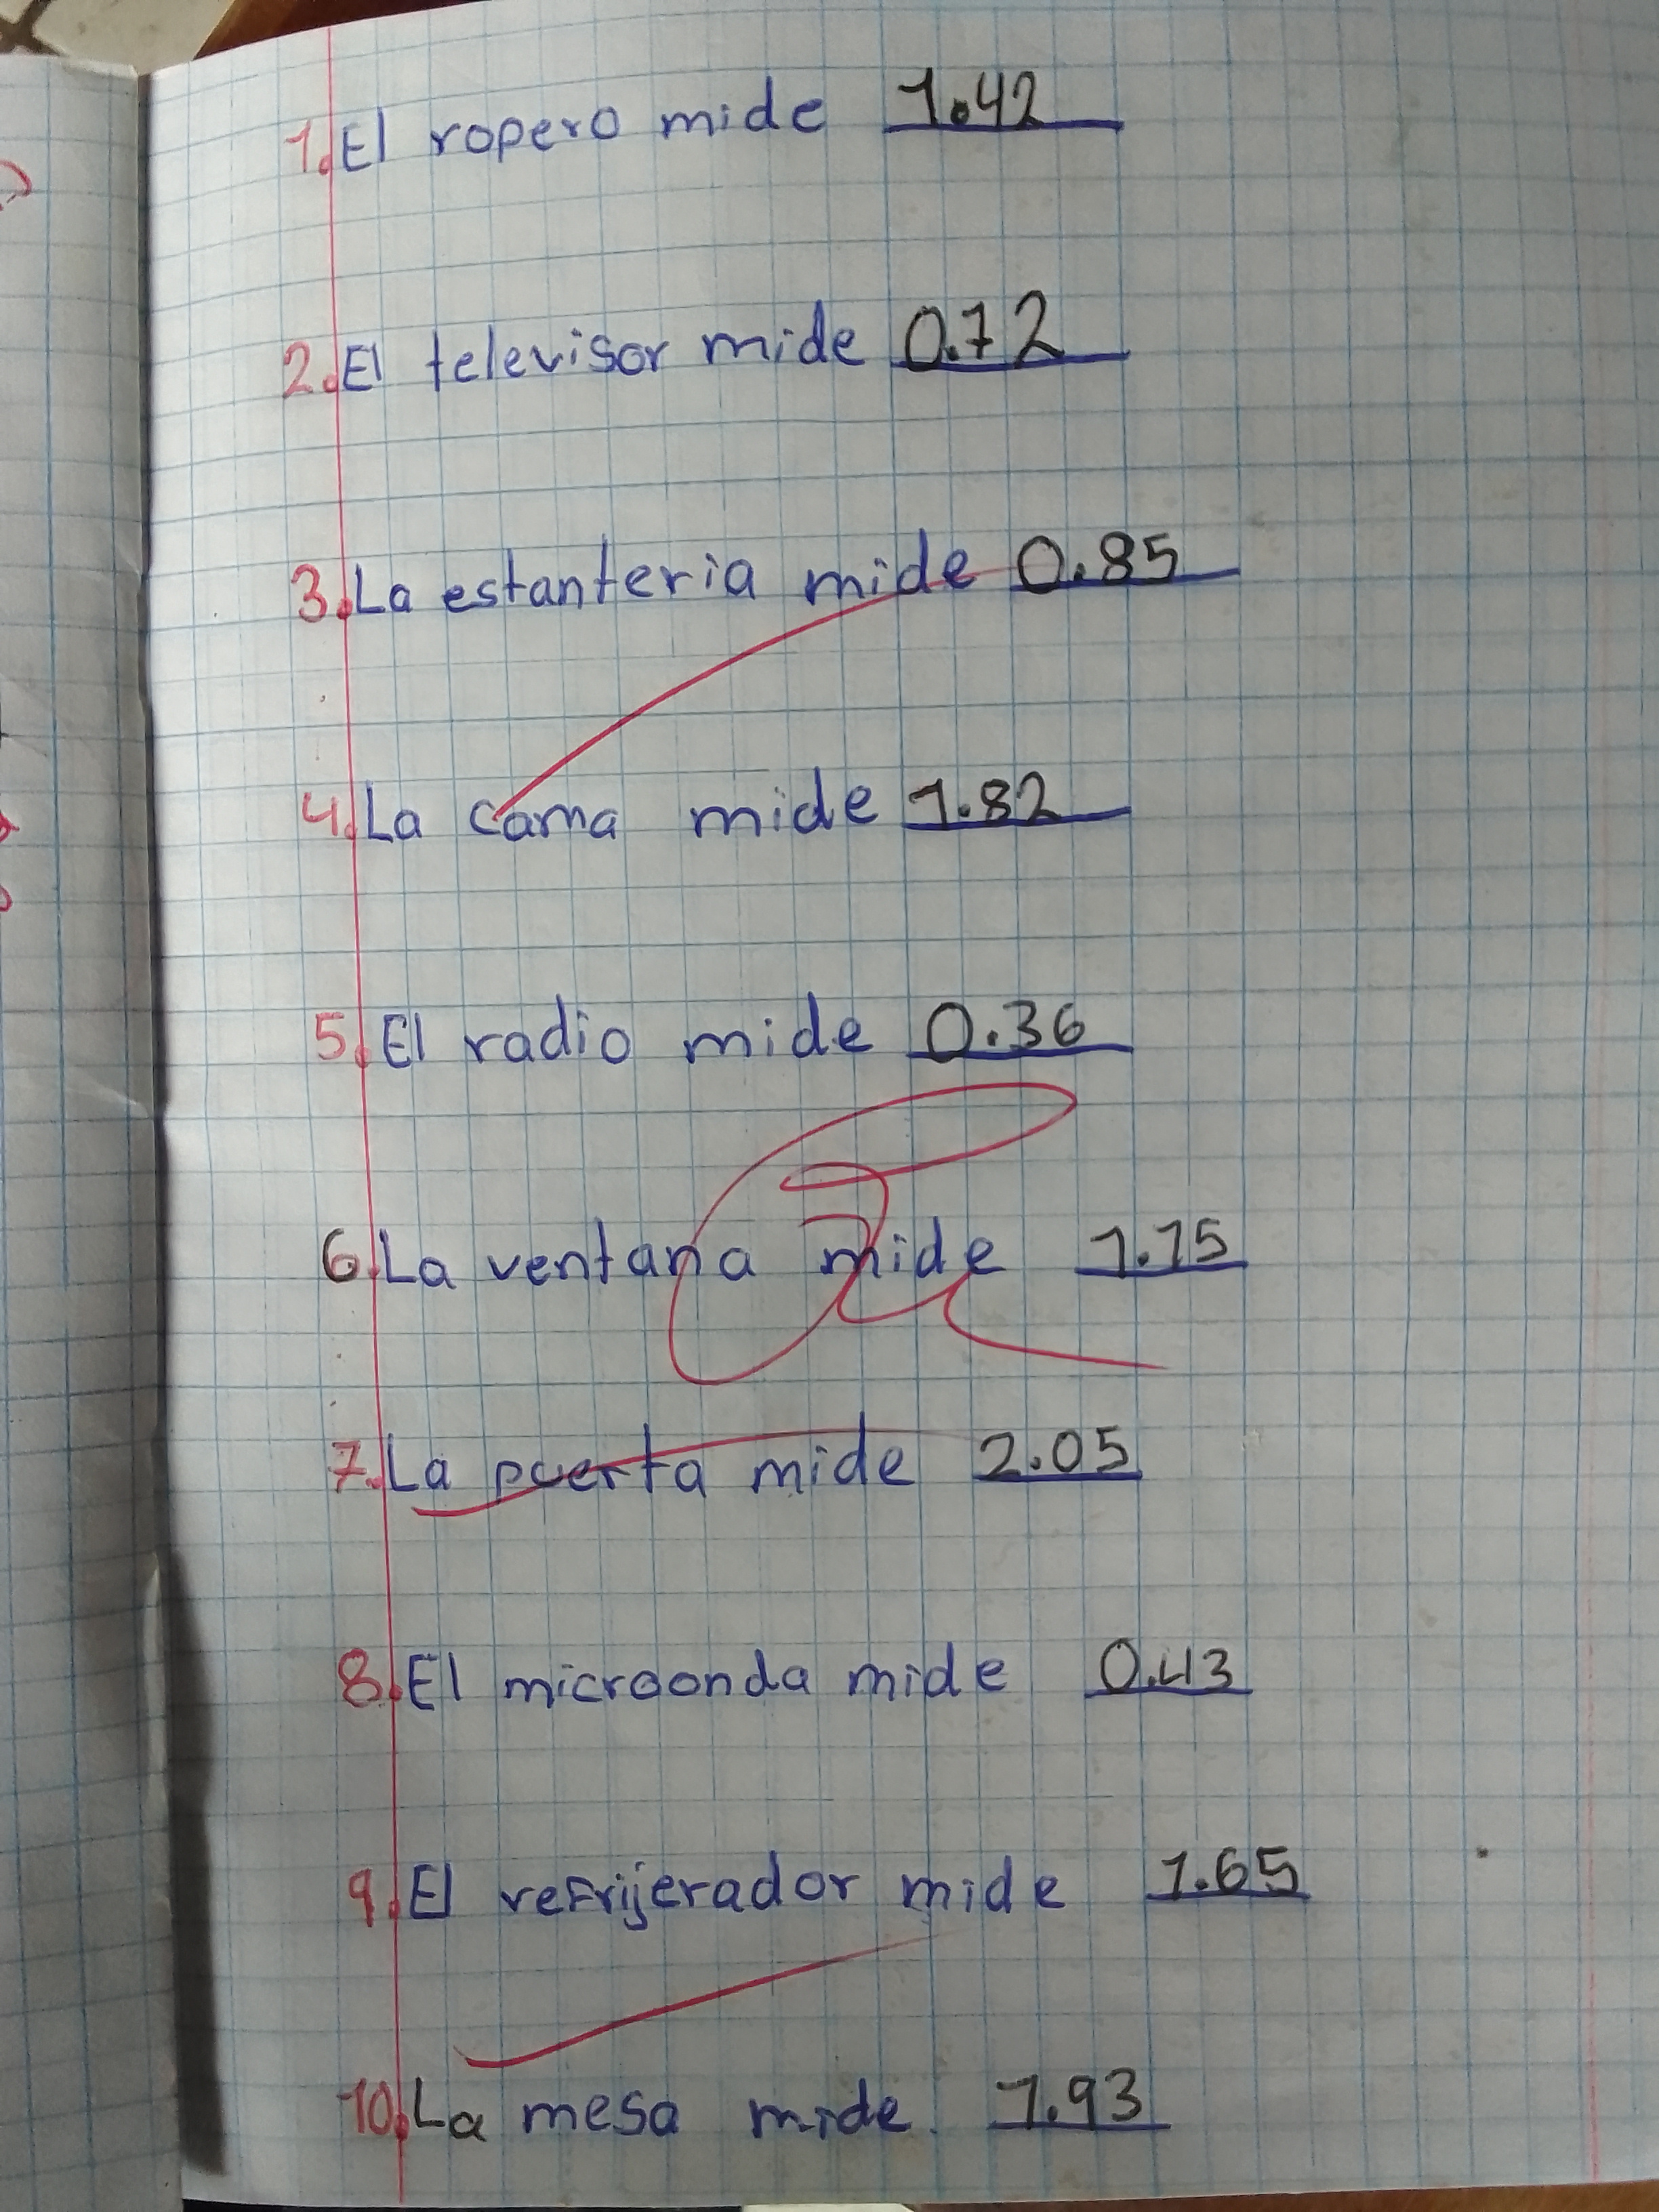 1. El ropero mide 1.42
2. El televisor mide 0.72
3. La estanteria mide 0.85
4. La cama mide 1.82
5. El radio mide 0.36
6. La ventana mide 1.15
7. La puerta mide 2.05
8. El microonda mide 0.43
9. El refrijerador mide 1.65
10. La mesa mide. 1.93